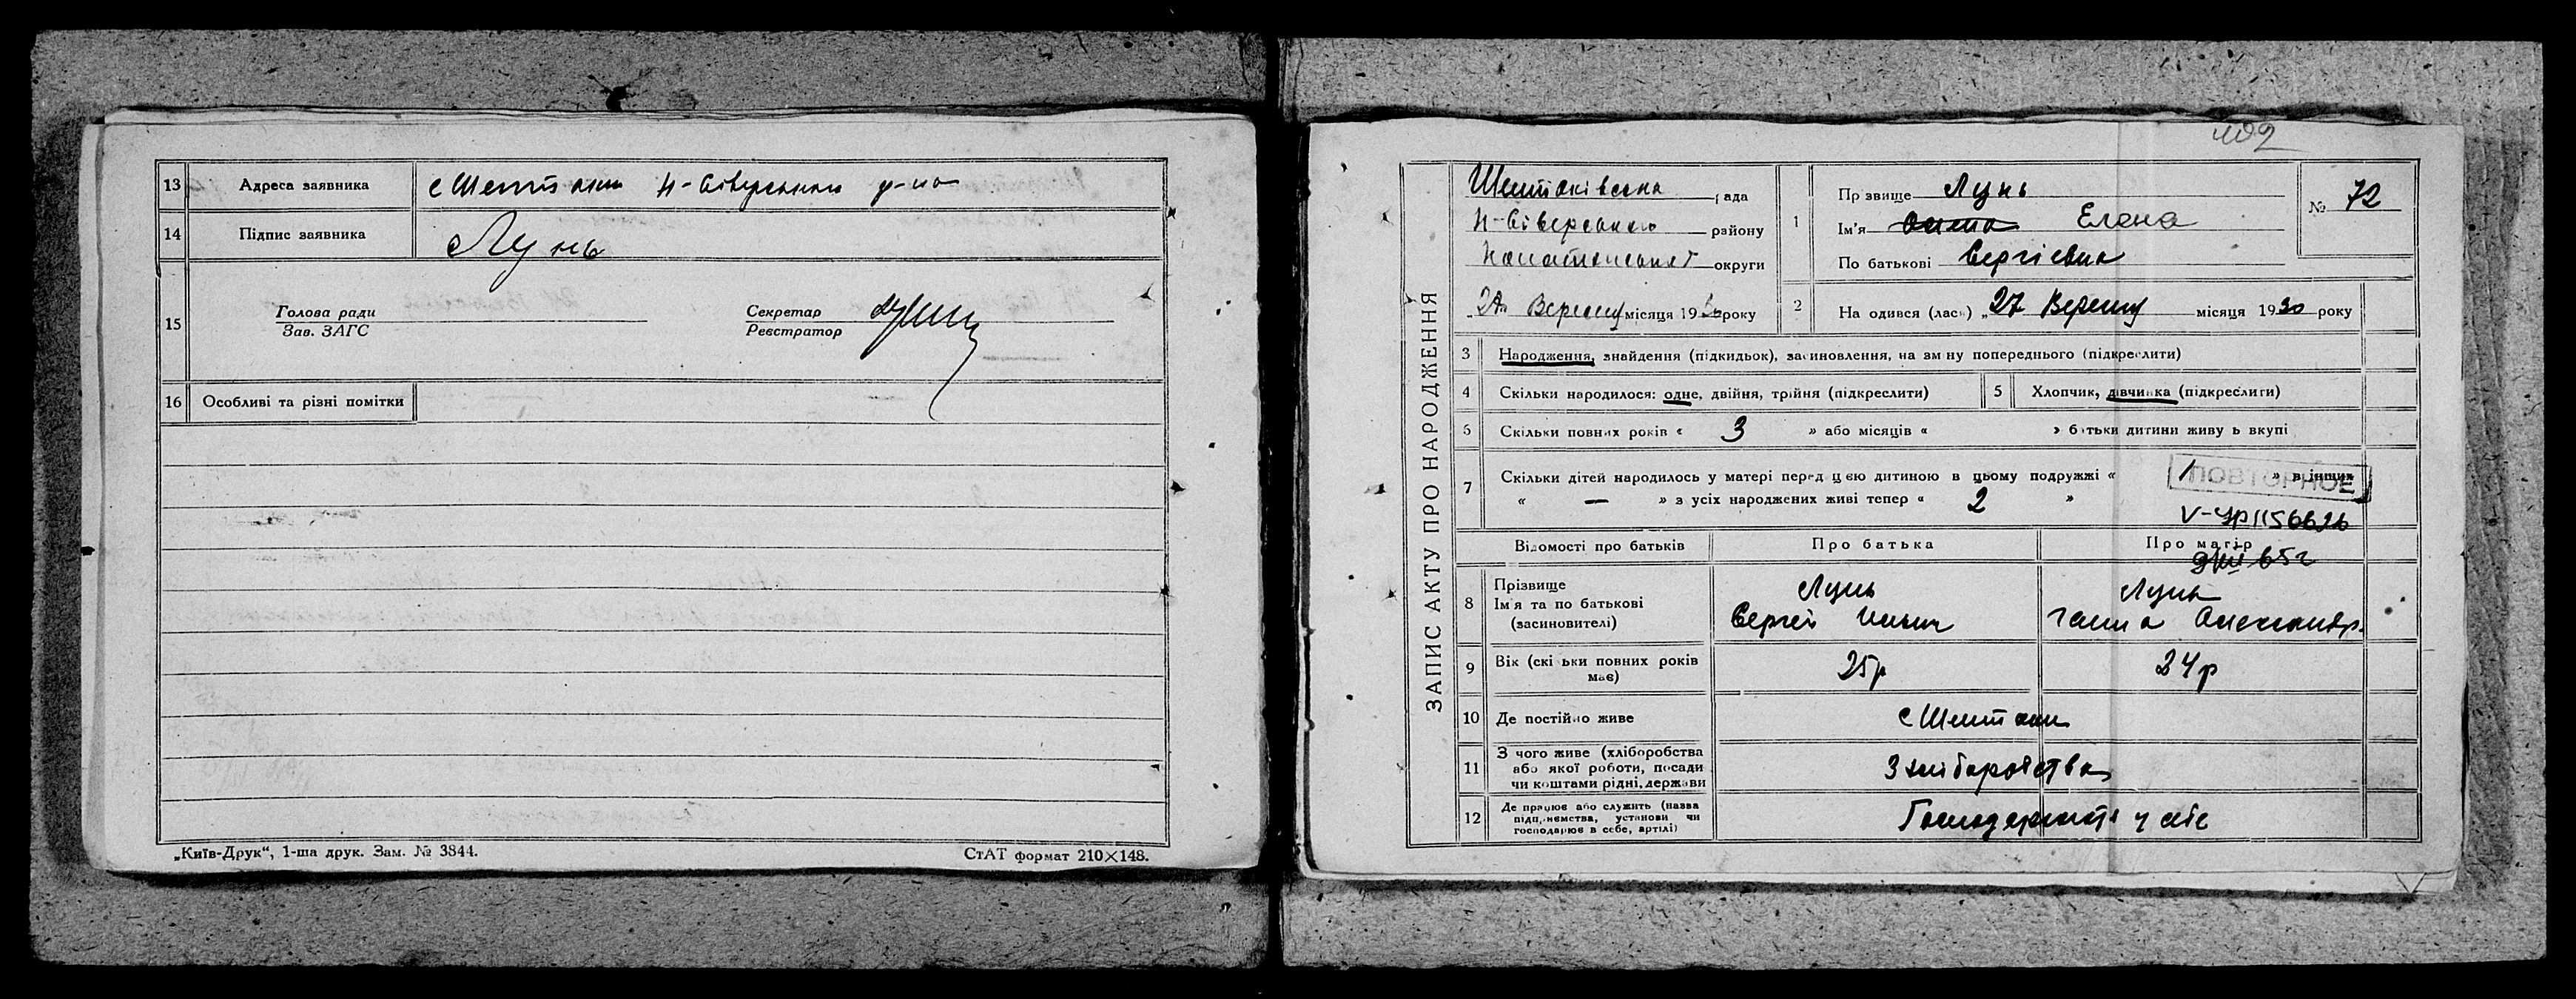 13 Адреса заявника с Шептаки Н-Сіверського р-на
14 Підпис заявника Лунь
15 Голова ради
Зав. ЗАГС
Секретар
Реєстратор
16 Особливі та різні помітки
„Київ-Друк“, 1-ша друк. Зам. № 3844.
СтАТ формат 210×148.
402
ЗАПИС АКТУ ПРО НАРОДЖЕННЯ
Шептаківська рада
Н-Сіверського району
округи
Вересня місяця 1930 року
1 Прізвище Лунь
Ім'я Елена
По батькові Сергієвна
№ 72
2 На одився (лась) „27 Вересня місяця 1930 року
3 Народження, знайдення (підкидьок), засиновлення, на зміну попереднього (підкреслити)
4 Скільки народилося: одне, двійня, трійня (підкреслити)
5 Хлопчик, дівчинка (підкреслити)
6 Скільки повних років « 3 » або місяців « » батьки дитини живуть вкупі
7 Скільки дітей народилось у матері перед цією дитиною в цьому подружжі « 1 » в інших
« — » з усіх народжених живі тепер « 2 »
ПОВТОРНОЕ
V-УР 1156626
65г
Відомості про батьків Про батька Про матір
8 Прізвище
Ім'я та по батькові
(засиновителі)
Лунь
Сергей Ильич
Лунь
Ганна Олександр.
9 Вік (скільки повних років має) 25р 24р
10 Де постійно живе с Шептаки
11 З чого живе (хліборобства
або якої роботи, посади
чи коштами рідні, держави
З хліборобства
12 Де працює або служить (назва
підприємства, установи чи
господарює в себе, артілі)
у себе